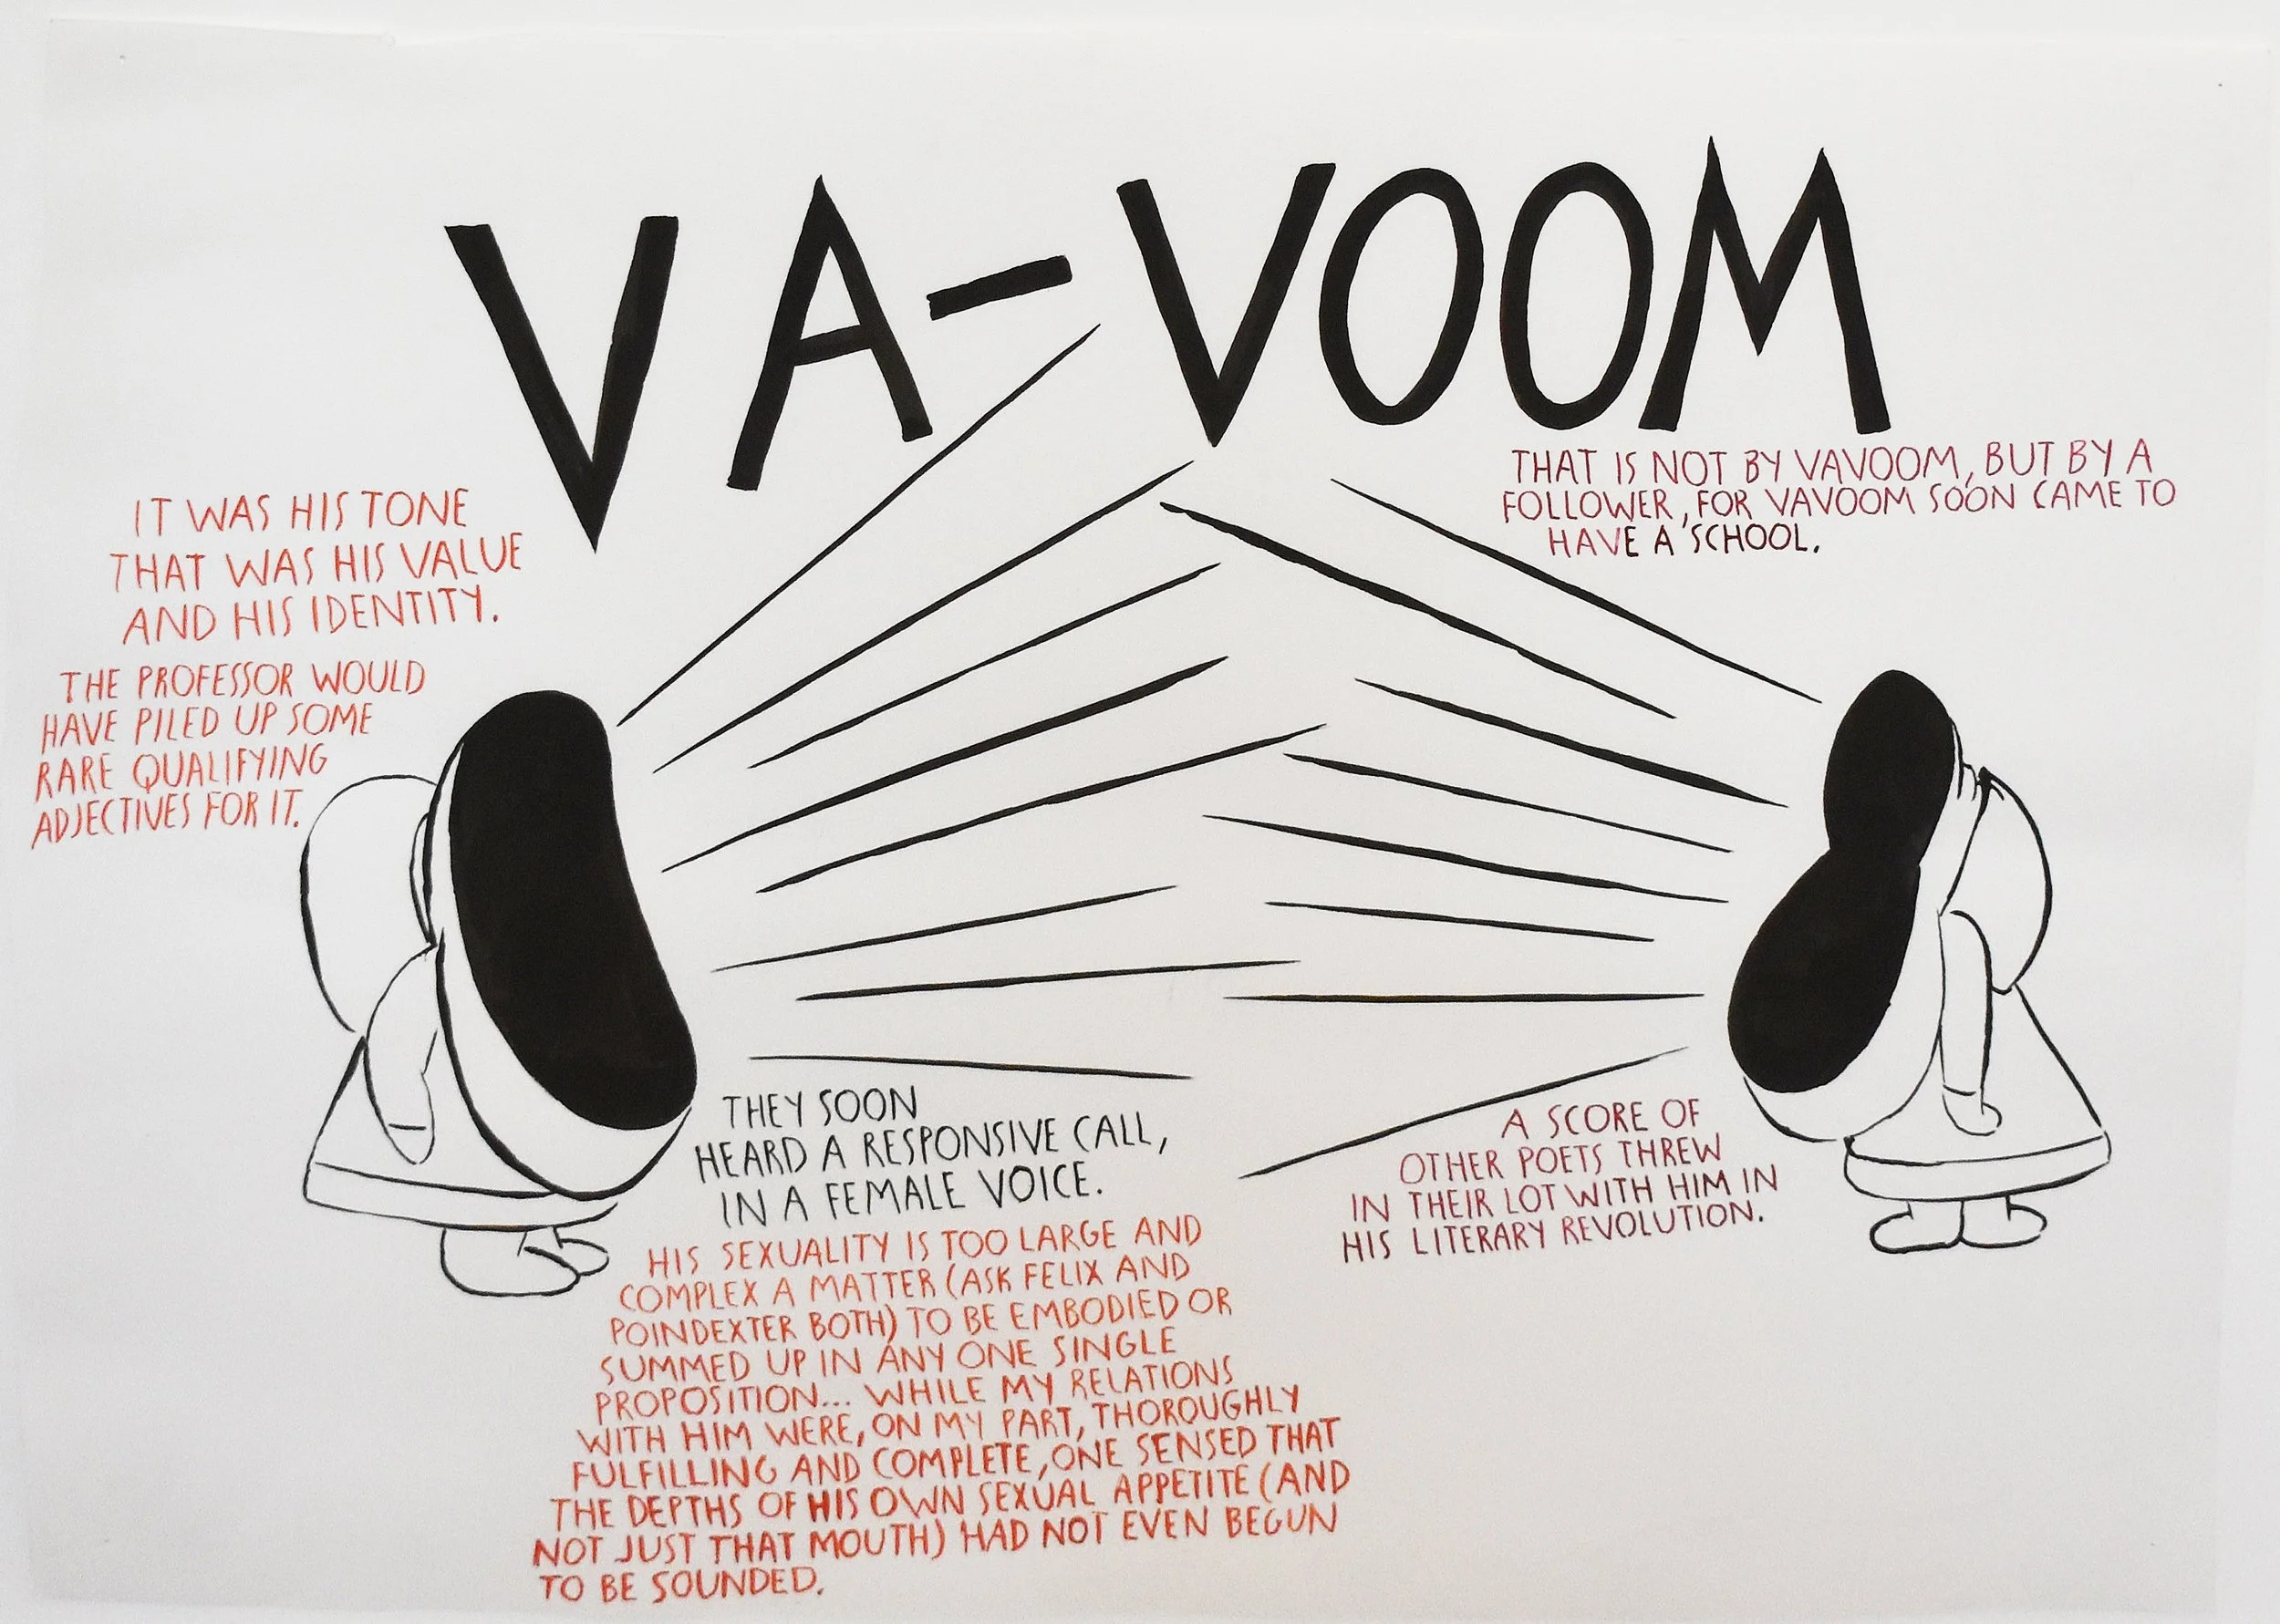 VA-VOOM
IT WAS HIS TONE
THAT WAS HIS VALUE
AND HIS IDENTITY.
THE PROFESSOR WOULD
HAVE PILED UP SOME
RARE QUALIFYING
ADJECTIVES FOR IT.
THAT IS NOT BY VAVOOM, BUT BY A
FOLLOWER, FOR VAVOOM SOON CAME TO
HAVE A SCHOOL.
THEY SOON
HEARD A RESPONSIVE CALL,
IN A FEMALE VOICE.
HIS SEXUALITY IS TOO LARGE AND
COMPLEX A MATTER (ASK FELIX AND
POINDEXTER BOTH) TO BE EMBODIED OR
SUMMED UP IN ANY ONE SINGLE
PROPOSITION... WHILE MY RELATIONS
WITH HIM WERE, ON MY PART, THOROUGHLY
FULFILLING AND COMPLETE, ONE SENSED THAT
THE DEPTHS OF HIS OWN SEXUAL APPETITE (AND
NOT JUST THAT MOUTH) HAD NOT EVEN BEGUN
TO BE SOUNDED.
A SCORE OF
OTHER POETS THREW
IN THEIR LOT WITH HIM IN
HIS LITERARY REVOLUTION.